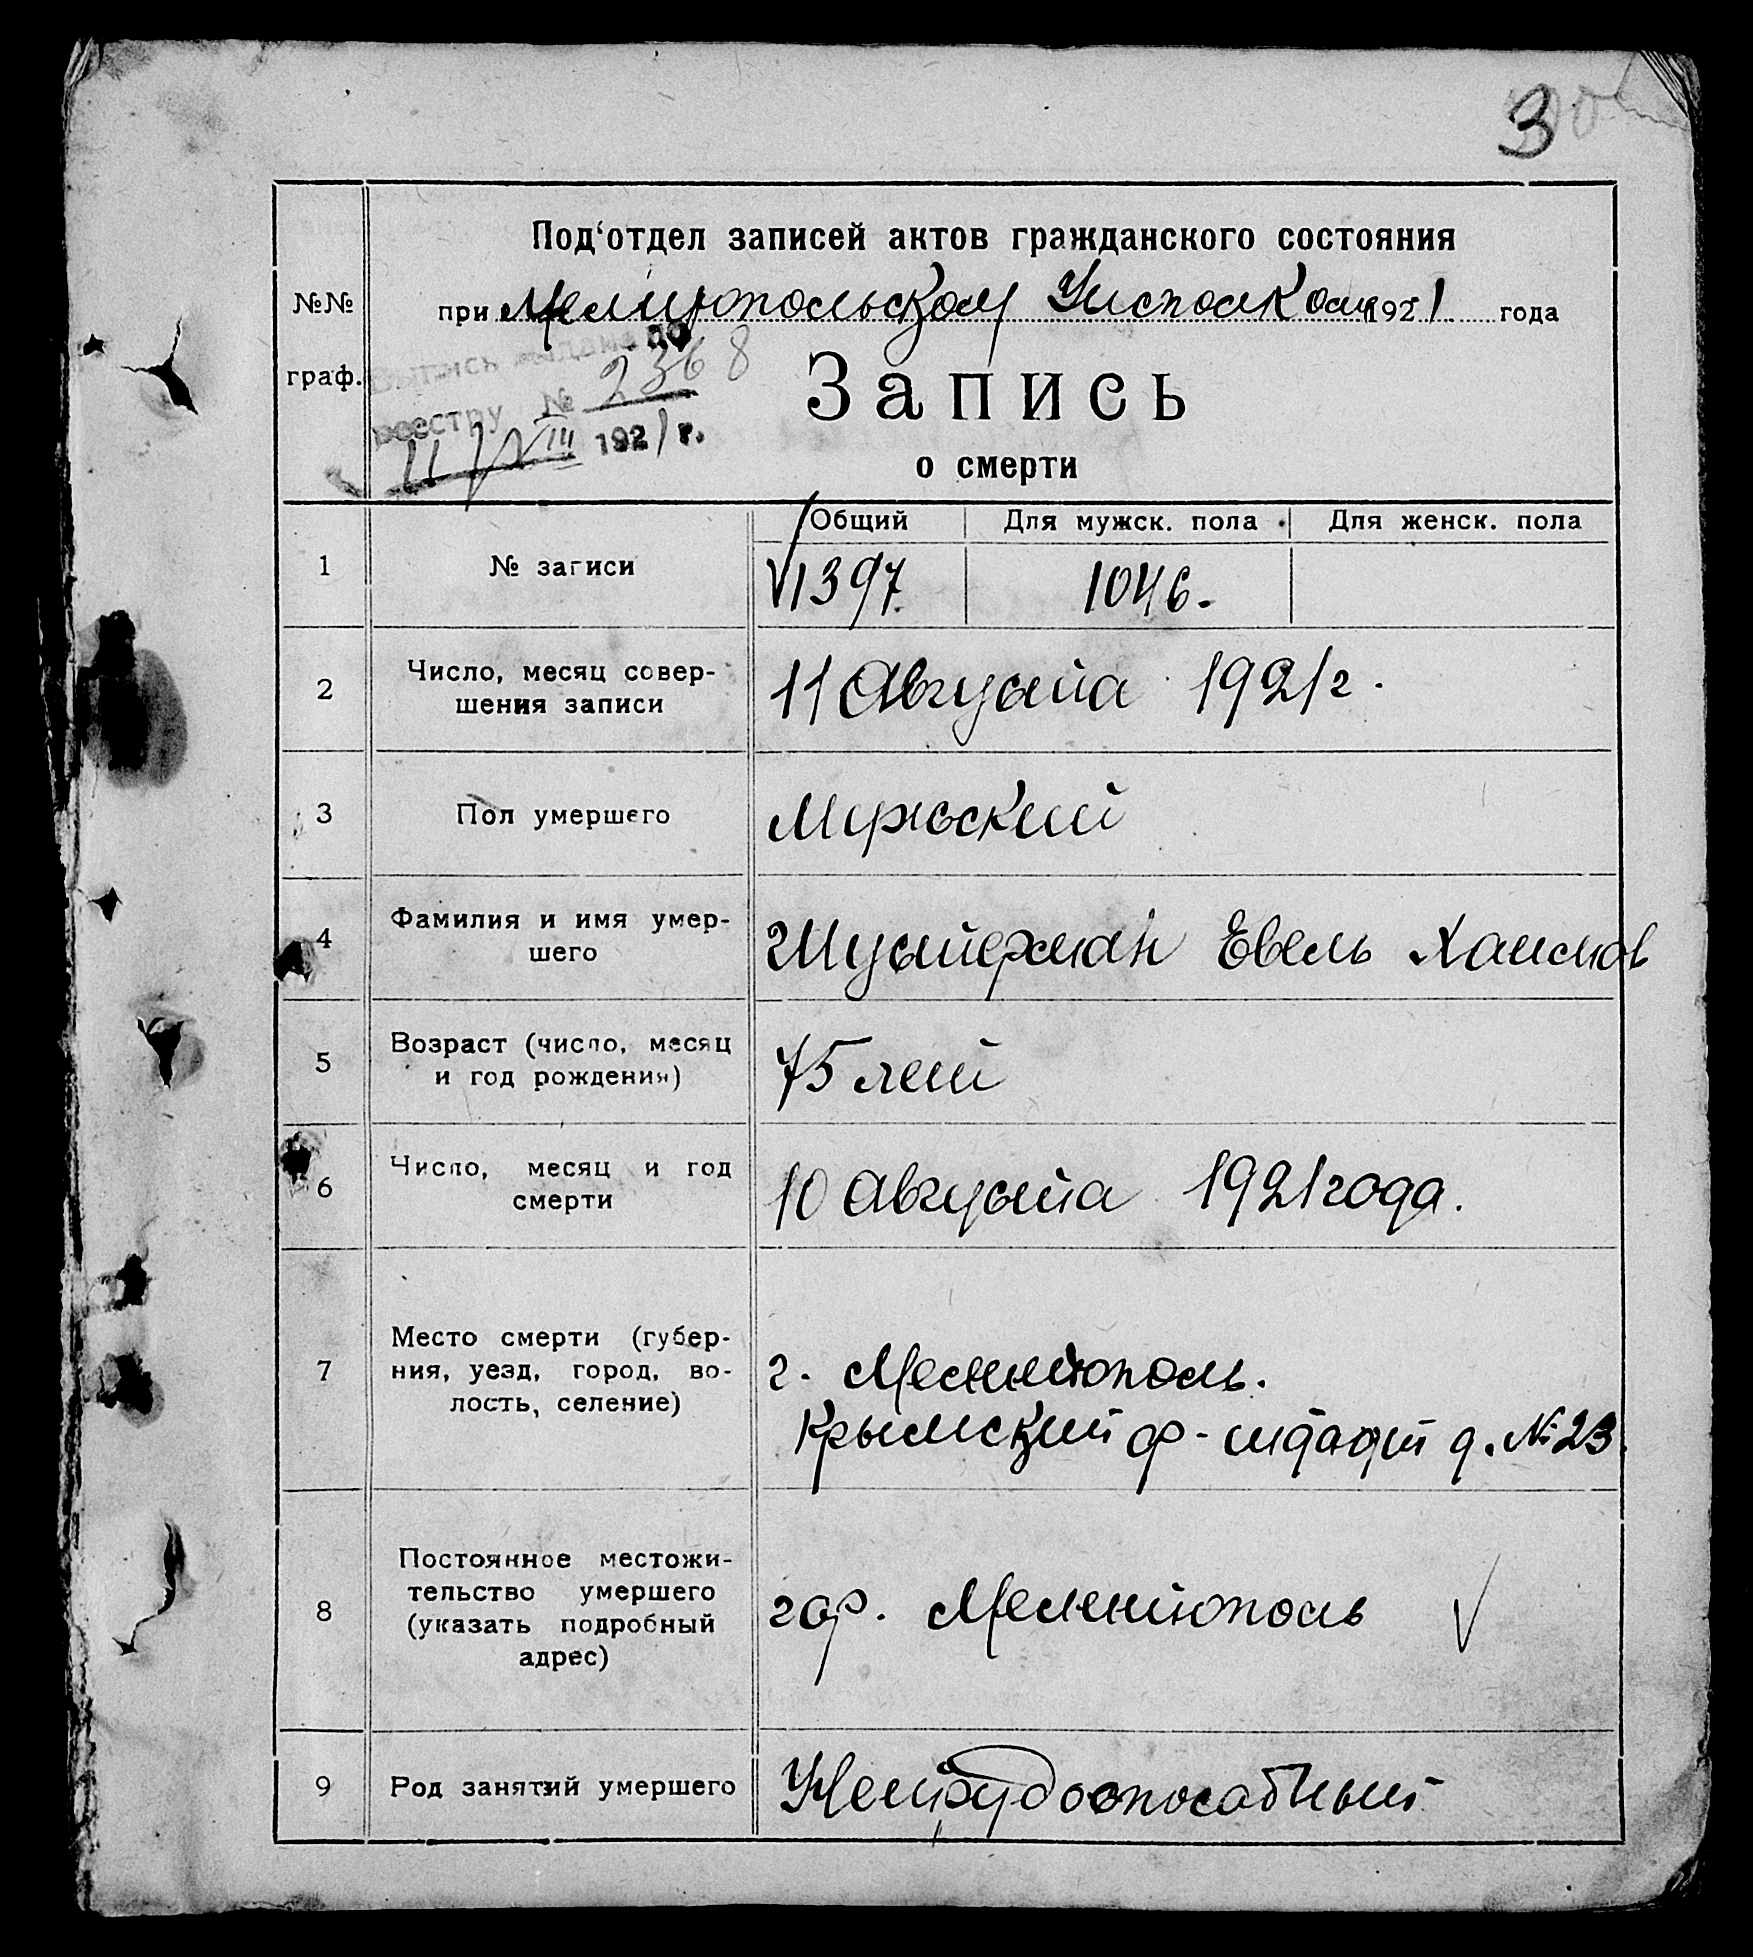 3
Под'отдел записей актов гражданского состояния
№№
при Мелитопольском Уисполкоме 1921 года
Выпись выдана по
граф.
реестру № 2368
11/VIII 1921 г.
Запись
о смерти
Общий Для мужск. пола Для женск. пола
1 № записи 1397. 1046.
2 Число, месяц совер-
шения записи
11 Августа 1921 г.
3 Пол умершего Мужской
4 Фамилия и имя умер-
шего
Шустерман Евель Хаимов
5 Возраст (число, месяц
и год рождения)
75 лет
6 Число, месяц и год
смерти
10 Августа 1921 года.
7 Место смерти (губер-
ния, уезд, город, во-
лость, селение)
г. Мелитополь.
Крымский ф-штадт д. № 23
8 Постоянное местожи-
тельство умершего
(указать подробный
адрес)
гор. Мелитополь
9 Род занятий умершего Нетрудоспособный